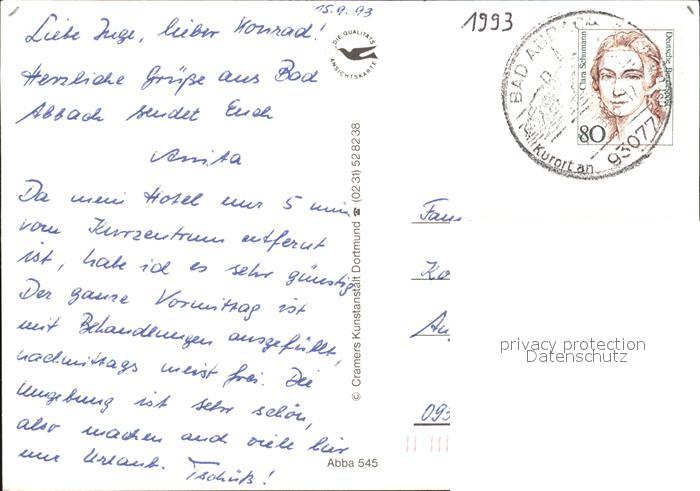 15.9.93
1993
Liebe Inge, lieber Konrad!
Herzliche Grüße aus Bad
Abbach sendet Euch
Anita
Da mein Hotel nur 5 min
vom Kurzentrum entfernt
ist, habe ich es sehr günstig.
Der ganze Vormittag ist
mit Behandlungen ausgefüllt,
nachmittags meist frei. Die
Umgebung ist sehr schön,
also machen auch viele hier
nur Urlaub. Tschüß!
DIE QUALITÄTS
ANSICHTSKARTE
© Cramers Kunstanstalt Dortmund ☎ (02 31) 52 82 38
Abba 545
BAD ABBACH
Kurort an
93077
Clara Schumann
Deutsche Bundespost
80
Fam
Ko
093
privacy protection
Datenschutz